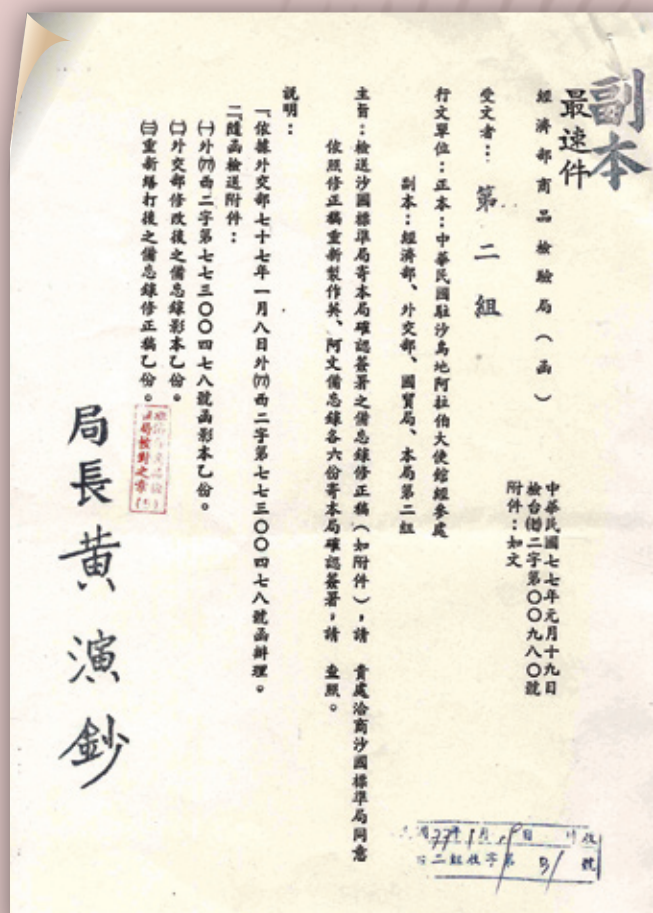 副本
最速件
經濟部商品檢驗局（函）
中華民國七七年元月十九日
檢台(77)二字第〇〇九八〇號
附件：如文
受文者：第二組
行文單位：正本：中華民國駐沙烏地阿拉伯大使館經參處
副本：經濟部、外交部、國貿局、本局第二組
主旨：檢送沙國標準局寄本局確認簽署之備忘錄修正稿（如附件），請　貴處洽商沙國標準局同意
依照修正稿重新製作英、阿文備忘錄各六份寄本局確認簽署，請　查照。
說明：
一、依據外交部七十七年一月八日外(77)西二字第七七三〇〇四七八號函辦理。
二、隨函檢送附件：
㈠外(77)西二字第七七三〇〇四七八號函影本乙份。
㈡外交部修改後之備忘錄影本乙份。
㈢重新繕打後之備忘錄修正稿乙份。
局長黃演鈔
77年1月 日
二組收字第 51 號